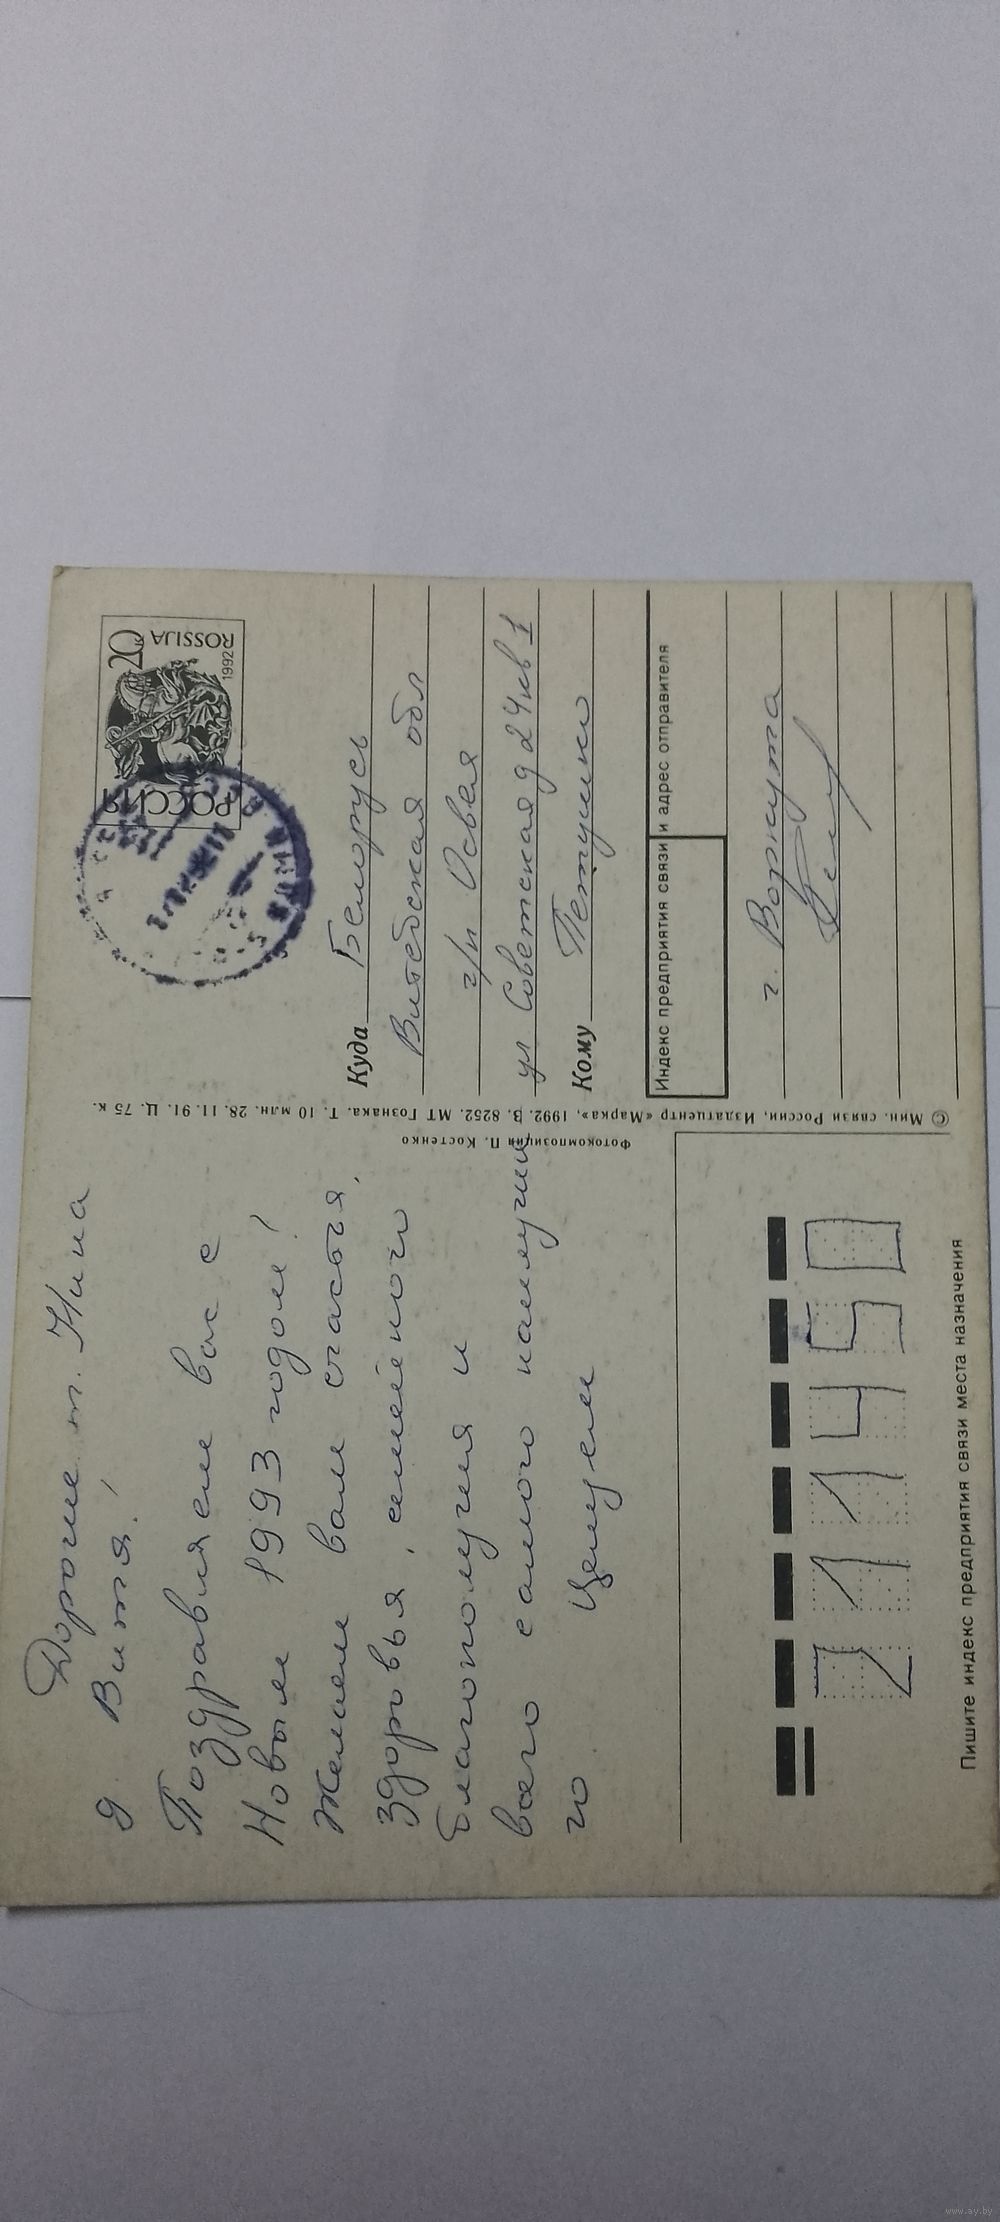 Дорогие т. Нина
д. Витя!
Поздравляем вас с
Новым 1993 годом!
Желаем вам счастья,
здоровья, семейного
благополучия и
всего самого наилучше
го. Целуем
Фотокомпозиция П. Костенко
© Мин. связи России, Издатцентр «Марка», 1992. З. 8252. МТ Гознака. Т. 10 млн. 28.11.91. Ц. 75 к.
РОССИЯ 20к
ROSSIJA
1992
Куда Беларусь
Витебская обл
г/п Освея
ул Советская д 24 кв 1
Кому Петушко
Индекс предприятия связи и адрес отправителя
г. Воркута
211450
Пишите индекс предприятия связи места назначения
www.ay.by